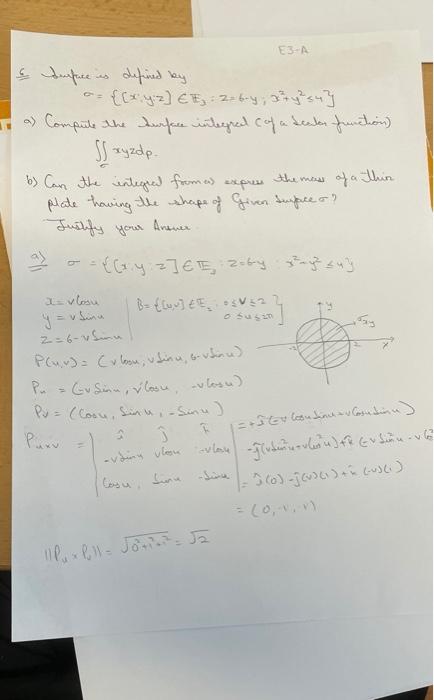 E3-A
6 Surface is defined by
σ = {[x,y,z] ∈ E₃ : z=6-y ; x²+y² ≤ 4}
a) Compute the surface integral (of a scalar function)
∬σ xyz dp.
b) Can the integral from a) express the mass of a thin
plate having the shape of Given surface σ?
Justify your Answer.
a) σ = {[x,y,z] ∈ E₃ : z=6-y x²+y² ≤ 4}
x = v cosu
y = v sinu
z = 6 - v sinu
B = {[u,v] ∈ E₂ : 0 ≤ v ≤ 2
0 ≤ u ≤ 2π}
y
σxy
-2 2 x
P(u,v) = (v cosu, v sinu, 6-v sinu)
Pu = (-v sinu, v cosu, -v cosu)
Pv = (cosu, sinu, -sinu)
Pu×v = | i j k
-v sinu v cosu -v cosu
cosu, sinu -sinu |
= +i(-v cosu sinu + v cosu sinu)
-j(v sin²u + v cos²u) + k(-v sin²u - v co
= i(0) - j(v)(1) + k(-v)(1)
= (0, -v, -v)
||Pu × Pv|| = √0²+1²+1² = √2